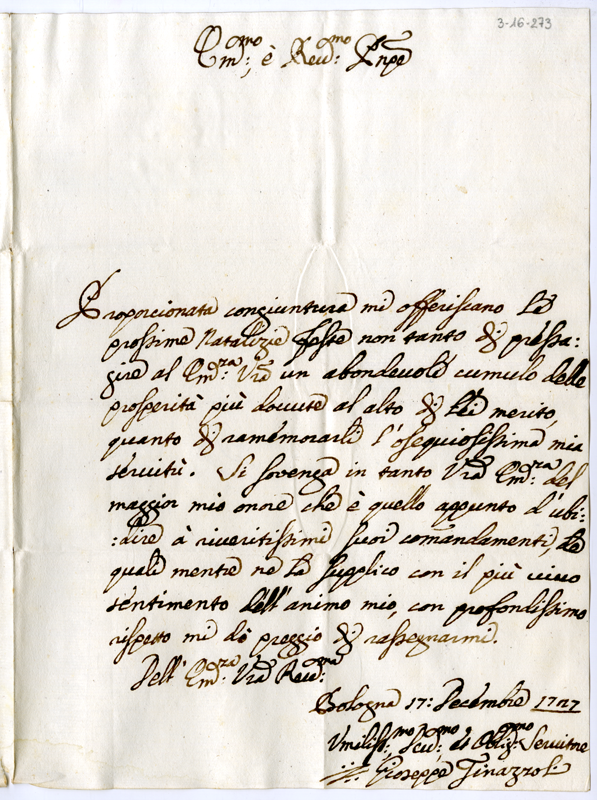 3-16-273
Em:mo, è Reud:mo Pnpe
Proporcionata congiuntura mi offeriscano le
prossime Natalizie feste non tanto di pressa:
gire al Em:za Vra un abondeuole cumulo delle
prosperità più douute al alto di lei merito,
quanto di ramemorarle l'osequiosissima mia
seruitù. Si souenga in tanto Vra Em:za del
maggior mio onore che è quello appunto d'ubi:
:dire à riueritissimi suoi comandamenti, le
quale mentre ne la supplico con il più uiuo
sentimento dell'animo mio, con profondissimo
rispetto mi dò preggio di rassegnarmi.
Dell' Em:za Vra Reud:ma
Bologna 17: Decembre 1727
Vmiliss:mo Deu:mo et Oblig:mo Seruitre
Gioseppe Tinazzoli